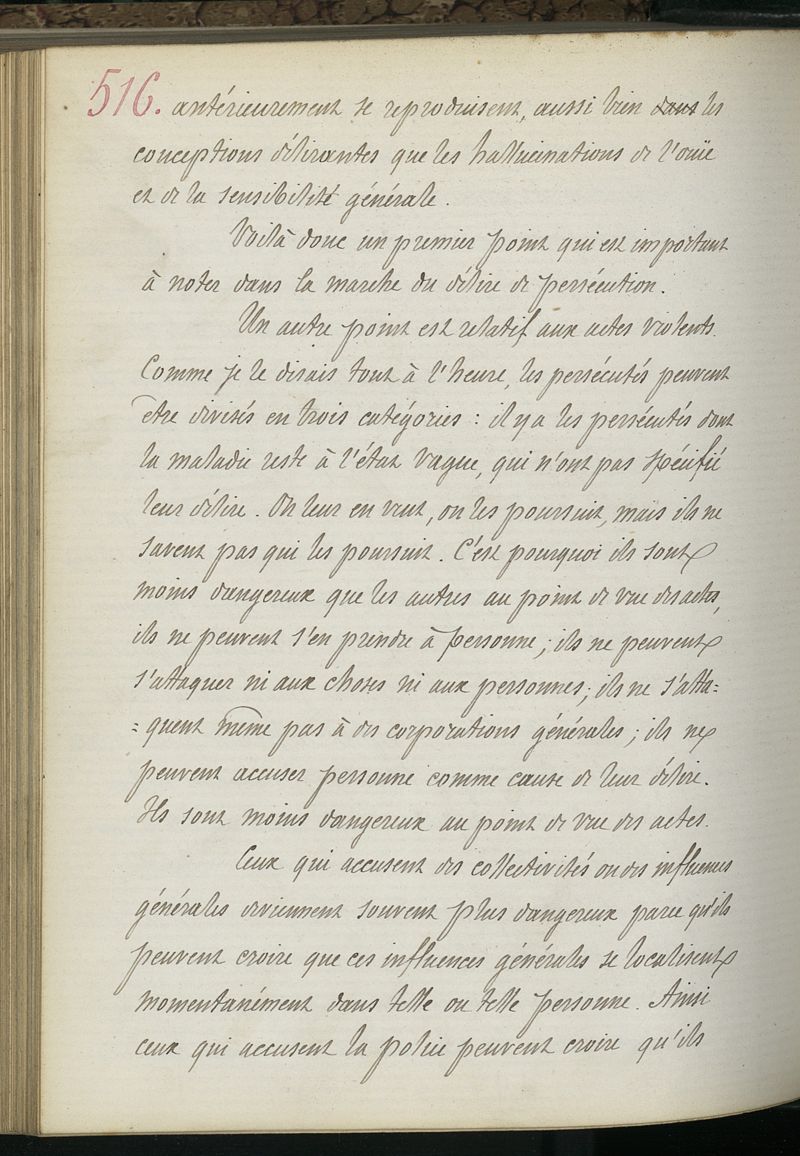 516. antérieurement se reproduisent, aussi bien dans les
conceptions délirantes que les hallucinations de l'ouïe
et de la sensibilité générale.
Voilà donc un premier point qui est important
à noter dans la marche du délire de persécution.
Un autre point est relatif aux actes violents.
Comme je le disais tout à l'heure, les persécutés peuvent
être divisés en trois catégories : il y a les persécutés dont
la maladie reste à l'état vague, qui n'ont pas spécifié
leur délire. On leur en veut, on les poursuit, mais ils ne
savent pas qui les poursuit. C'est pourquoi ils sont
moins dangereux que les autres au point de vue des actes,
ils ne peuvent s'en prendre à personne ; ils ne peuvent
s'attaquer ni aux choses ni aux personnes ; ils ne s'atta=
=quent même pas à des corporations générales ; ils ne
peuvent accuser personne comme cause de leur délire.
Ils sont moins dangereux au point de vue des actes.
Ceux qui accusent des collectivités ou des influences
générales deviennent souvent plus dangereux parce qu'ils
peuvent croire que ces influences générales se localisent
momentanément dans telle ou telle personne. Ainsi
ceux qui accusent la police peuvent croire qu'ils